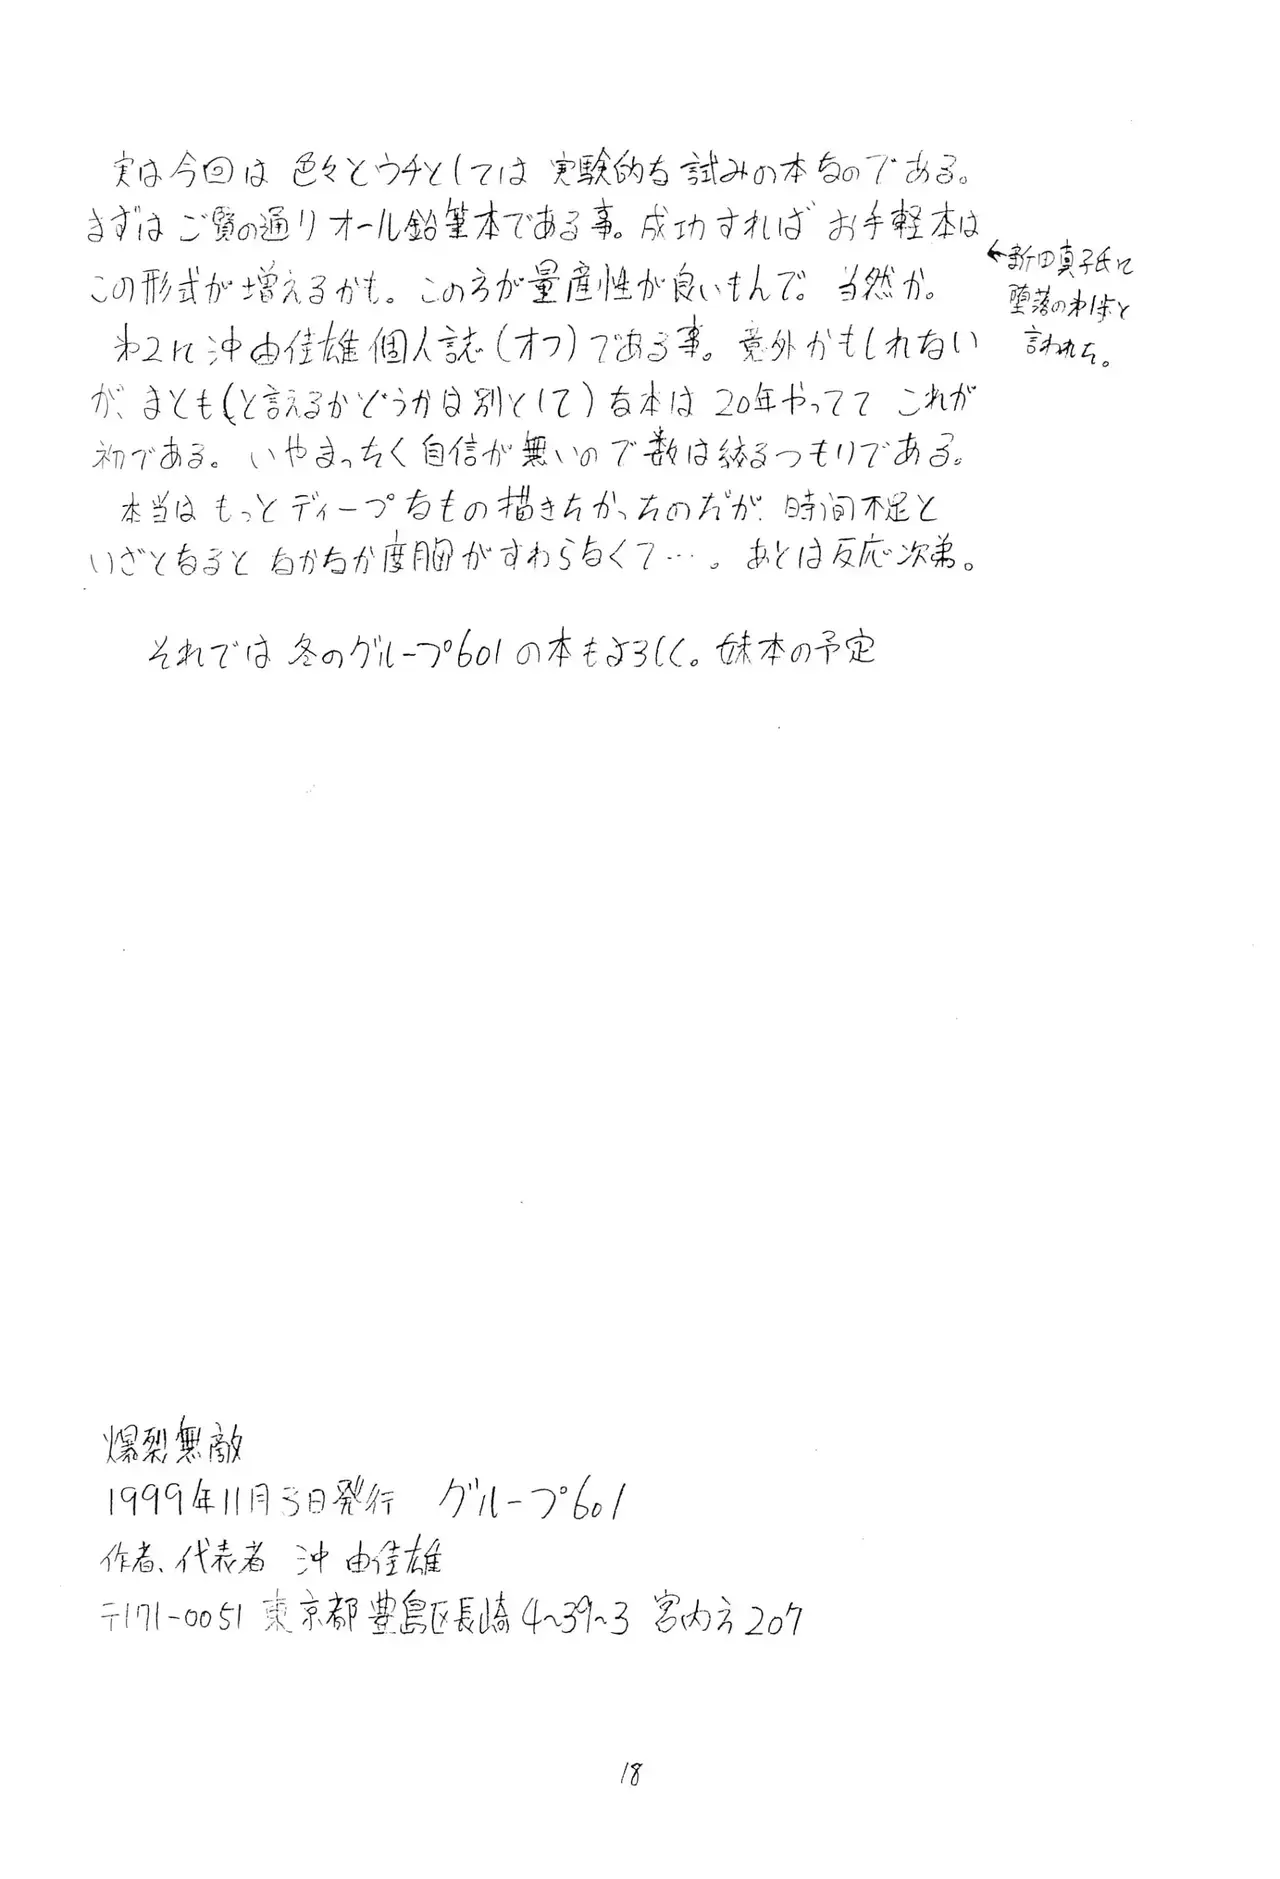 実は今回は色々とウチとしては実験的な試みの本なのである。
まずはご覧の通りオール鉛筆本である事。成功すればお手軽本は
この形式が増えるかも。この方が量産性が良いもんで。当然か。
←新田真子氏に
堕落の第1歩と
言われた。
第2に沖由佳雄個人誌（オフ）である事。意外かもしれない
が、まとも（と言えるかどうかは別として）な本は20年やっててこれが
初である。いやまったく自信が無いので数は絞るつもりである。
本当はもっとディープなもの描きたかったのだが、時間不足と
いざとなるとなかなか度胸がすわらなくて…。あとは反応次第。
それでは冬のグループ601の本もよろしく。妹本の予定
爆裂無敵
1999年11月3日発行 グループ601
作者、代表者 沖由佳雄
〒171-0051 東京都豊島区長崎4〜39〜3 宮内方207
18